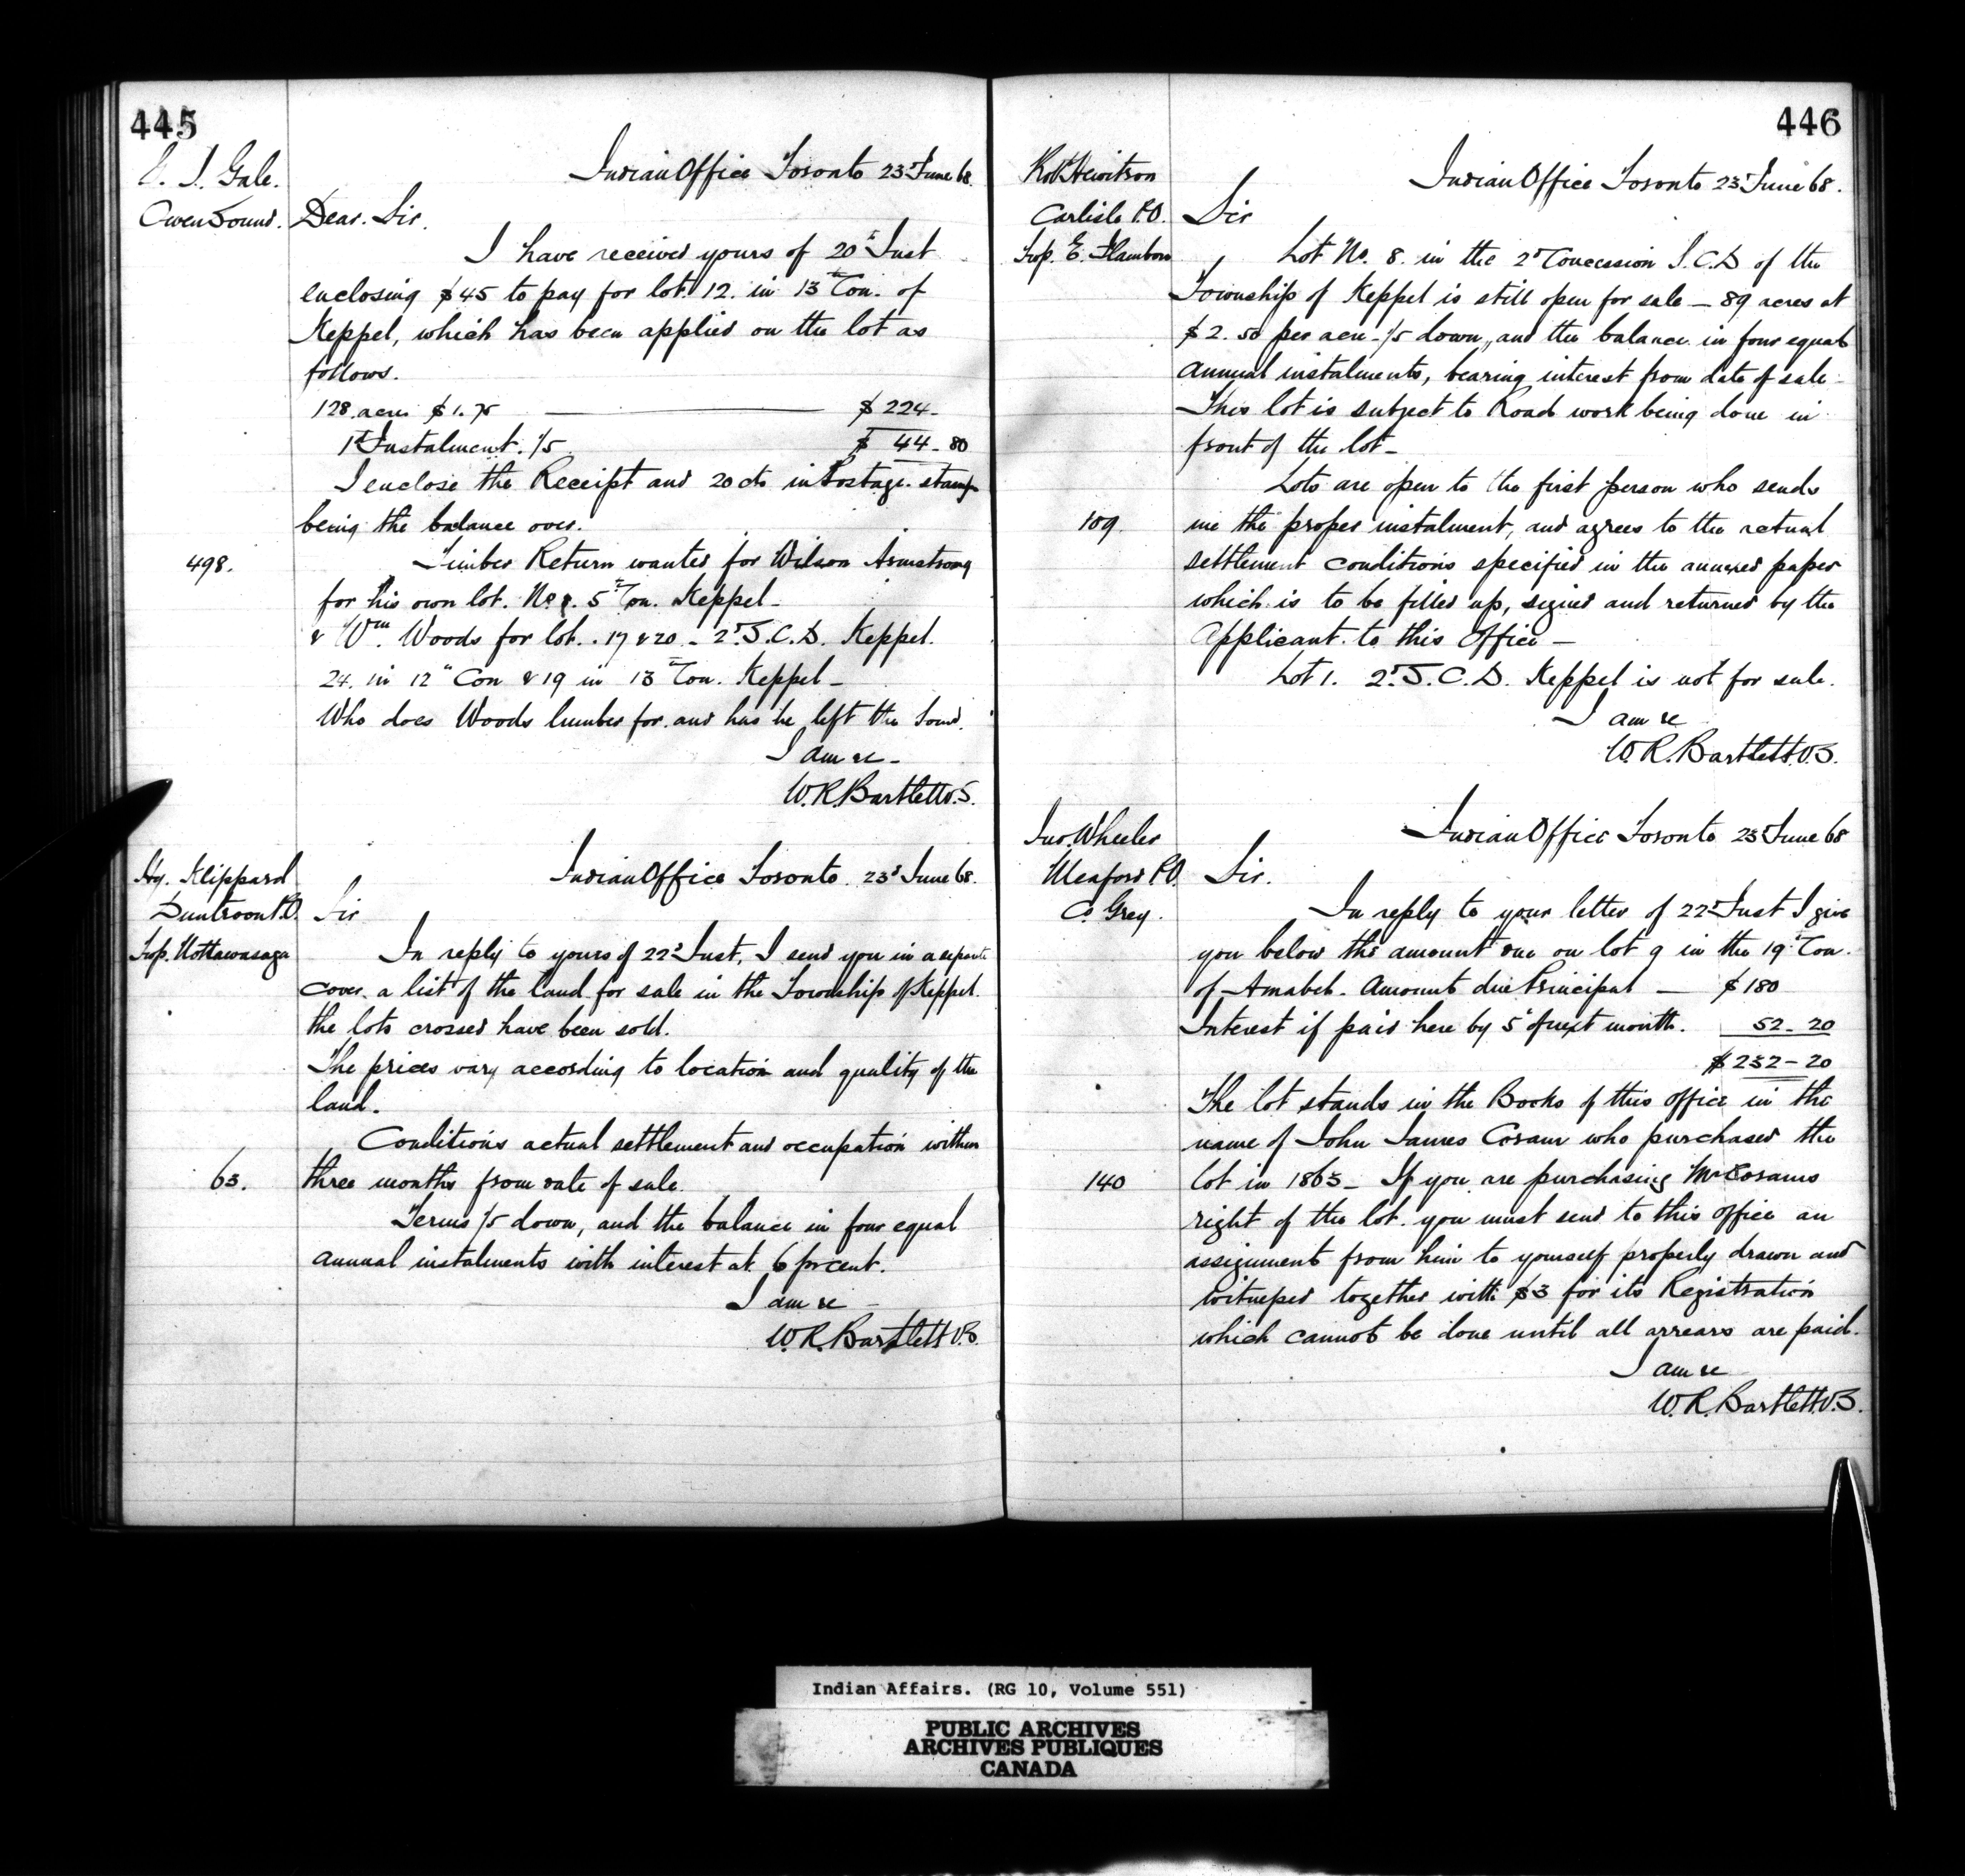 445
C. J. Gale.
Owen Sound.
Indian Office Toronto 23d June 68.
Dear Sir.
I have received yours of 20th Inst
enclosing $45 to pay for lot 12. in 13th Con. of
Keppel, which has been applied on the lot as
follows.
128 acres $1.75 — $224-
1st Instalment. 1/5 $ 44-80
I enclose the Receipt and 20 cts in Postage stamps
being the balance over.
498.
Timber Return wanted for Wilson Armstrong
for his own lot. No 9. 5th Con. Keppel-
& Wm. Woods for lot. 17 & 20 - 2d S.C.D. Keppel.
24. in 12" Con & 19 in 13th Con. Keppel-
Who does Woods lumber for and has he left the Sound.
I am &c-
W.R. Bartlett V.S.
Hy. Klippard
Duntroon P.O.
Twp. Nottawasaga
Indian Office Toronto. 23d June 68.
Sir
In reply to yours of 22d Inst, I send you in a separate
cover a list of the land for sale in the Township of Keppel.
the lots crossed have been sold.
The prices vary according to location and quality of the
land.
Conditions actual settlement and occupation within
63.
three months from date of sale.
Terms 1/5 down, and the balance in four equal
annual instalments with interest at 6 prcent.
I am &c-
W.R. Bartlett V.S.
446
Robt Hewitson
Carlisle P.O.
Twp. E. Flamboro
Indian Office Toronto 23d June 68.
Sir
Lot No. 8. in the 2d Concession S.C.D of the
Township of Keppel is still open for sale — 89 acres at
$2.50 per acre - 1/5 down, and the balance in four equal
annual instalments, bearing interest from date of sale-
This lot is subject to Road work being done in
front of the lot-
Lots are open to the first person who sends
109.
me the proper instalment, and agrees to the actual
settlement conditions specified in the annexed paper
which is to be filled up, signed and returned by the
Applicant to this Office —
Lot 1. 2d S.C.D. Keppel is not for sale.
I am &c
W.R. Bartlett V.S.
Jno. Wheeler
Meaford P.O.
Co Grey.
Indian Office Toronto 23d June 68
Sir.
In reply to your letter of 22d Inst I give
you below the amount due on lot 9 in the 19th Con.
of Amabel. Amount due Principal — $180
Interest if paid here by 5th of next month. 52-20
$232-20
The lot stands in the Books of this office in the
name of John James Cosam who purchased the
140
lot in 1863 - If you are purchasing Mr Cosams
right of the lot. you must send to this office an
assignment from him to yourself properly drawn and
witnessed together with $3 for its Registration
which cannot be done until all arrears are paid.
I am &c
W.R. Bartlett V.S.
Indian Affairs. (RG 10, Volume 551)
PUBLIC ARCHIVES
ARCHIVES PUBLIQUES
CANADA